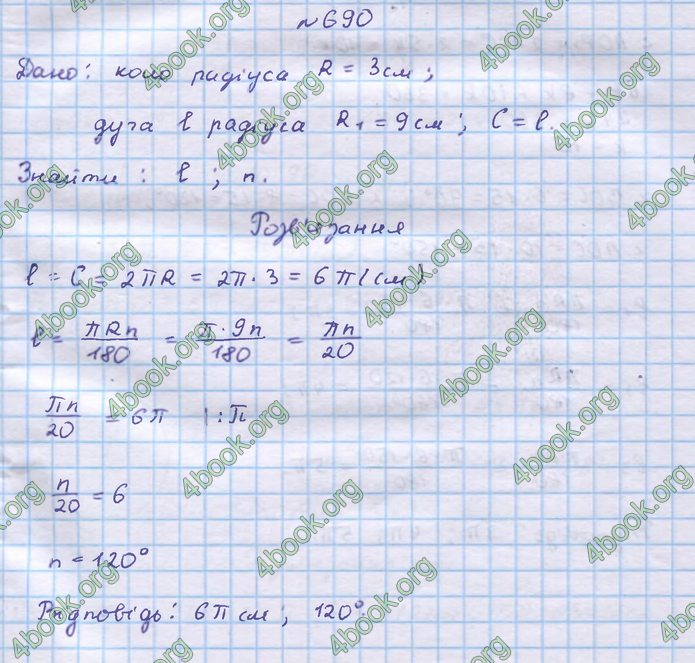 №690
Дано: коло радіуса R = 3см;
дуга l радіуса R₁ = 9см; C = l.
Знайти: l; n.
Розв'язання
l = C = 2πR = 2π·3 = 6π(см)
l = πRn/180 = π·9n/180 = πn/20
πn/20 = 6π | :π
n/20 = 6
n = 120°
Відповідь: 6π см; 120°.
4book.org